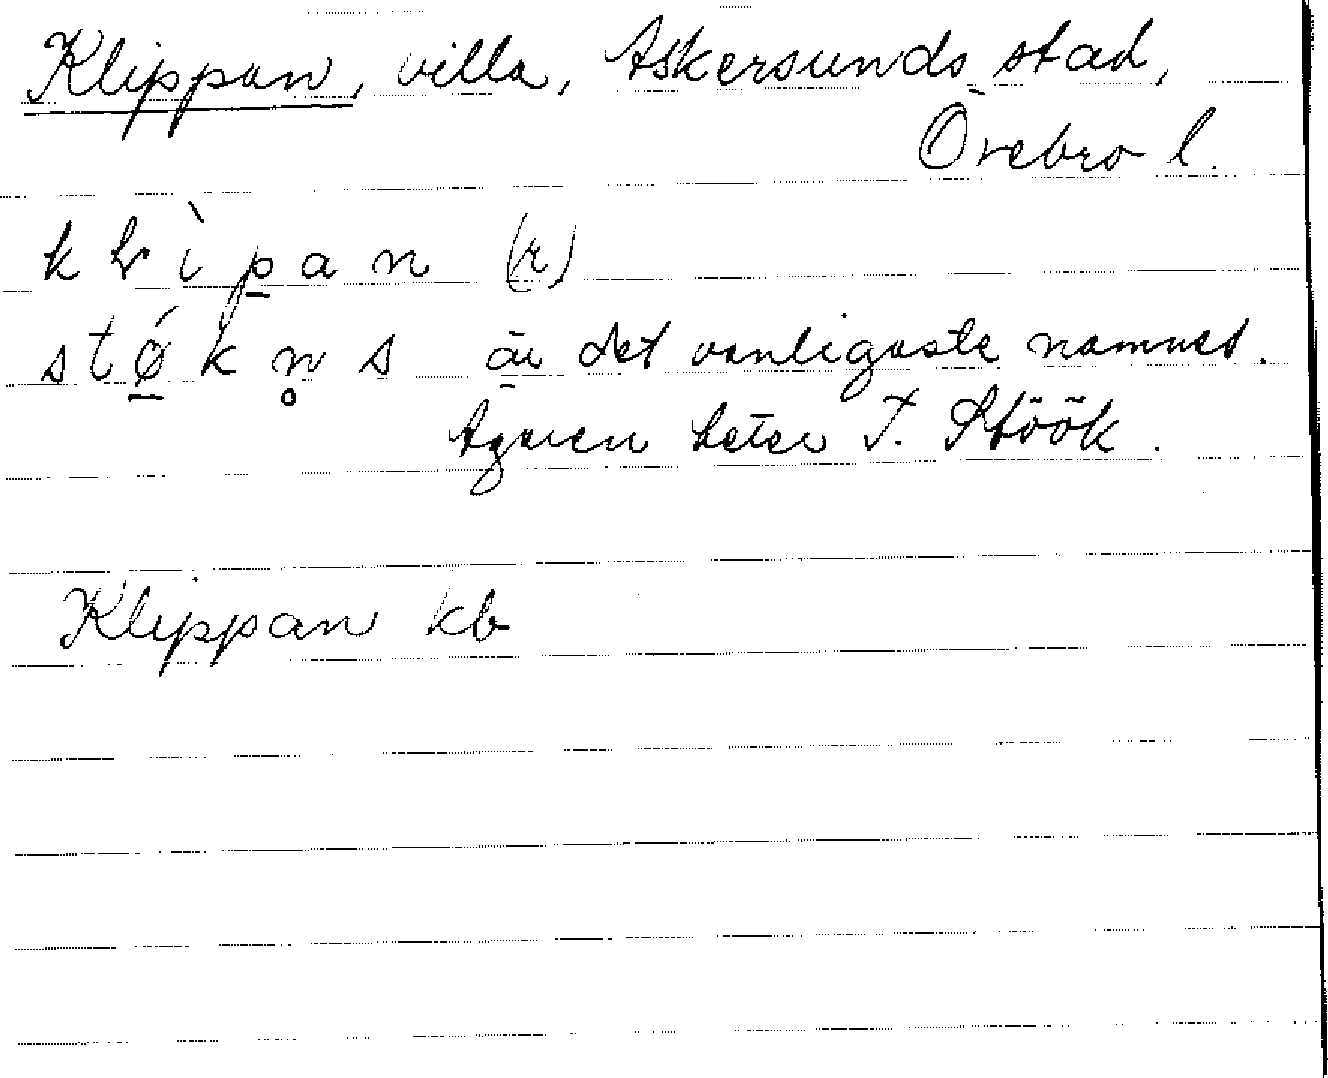 Klippan, villa, Askersunds stad,
Örebro l.
klìp̠an (r)
stǿ̠kn̥s är det vanligaste namnet.
Ägaren heter T. Stöök.
Klippan kb